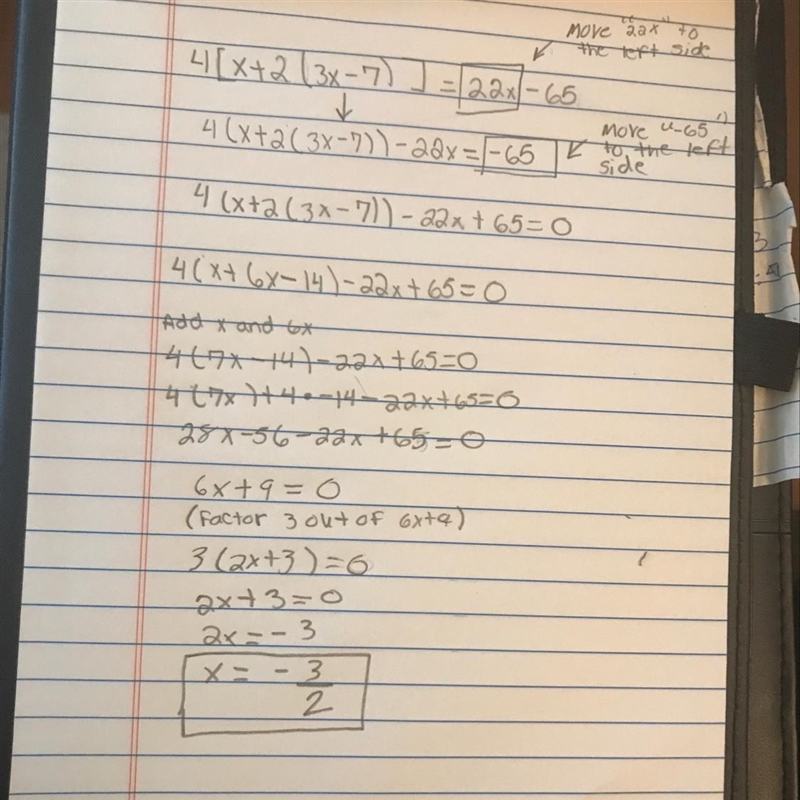 Move "22x" to
the left side
4[x+2(3x-7)] = 22x - 65
4(x+2(3x-7)) - 22x = -65
Move "-65"
to the left
side
4(x+2(3x-7)) - 22x + 65 = 0
4(x+6x-14) - 22x + 65 = 0
Add x and 6x
4(7x-14) - 22x + 65 = 0
4(7x) + 4 • -14 - 22x + 65 = 0
28x - 56 - 22x + 65 = 0
6x + 9 = 0
(Factor 3 out of 6x+9)
3(2x+3) = 0
2x + 3 = 0
2x = - 3
x = - 3/2